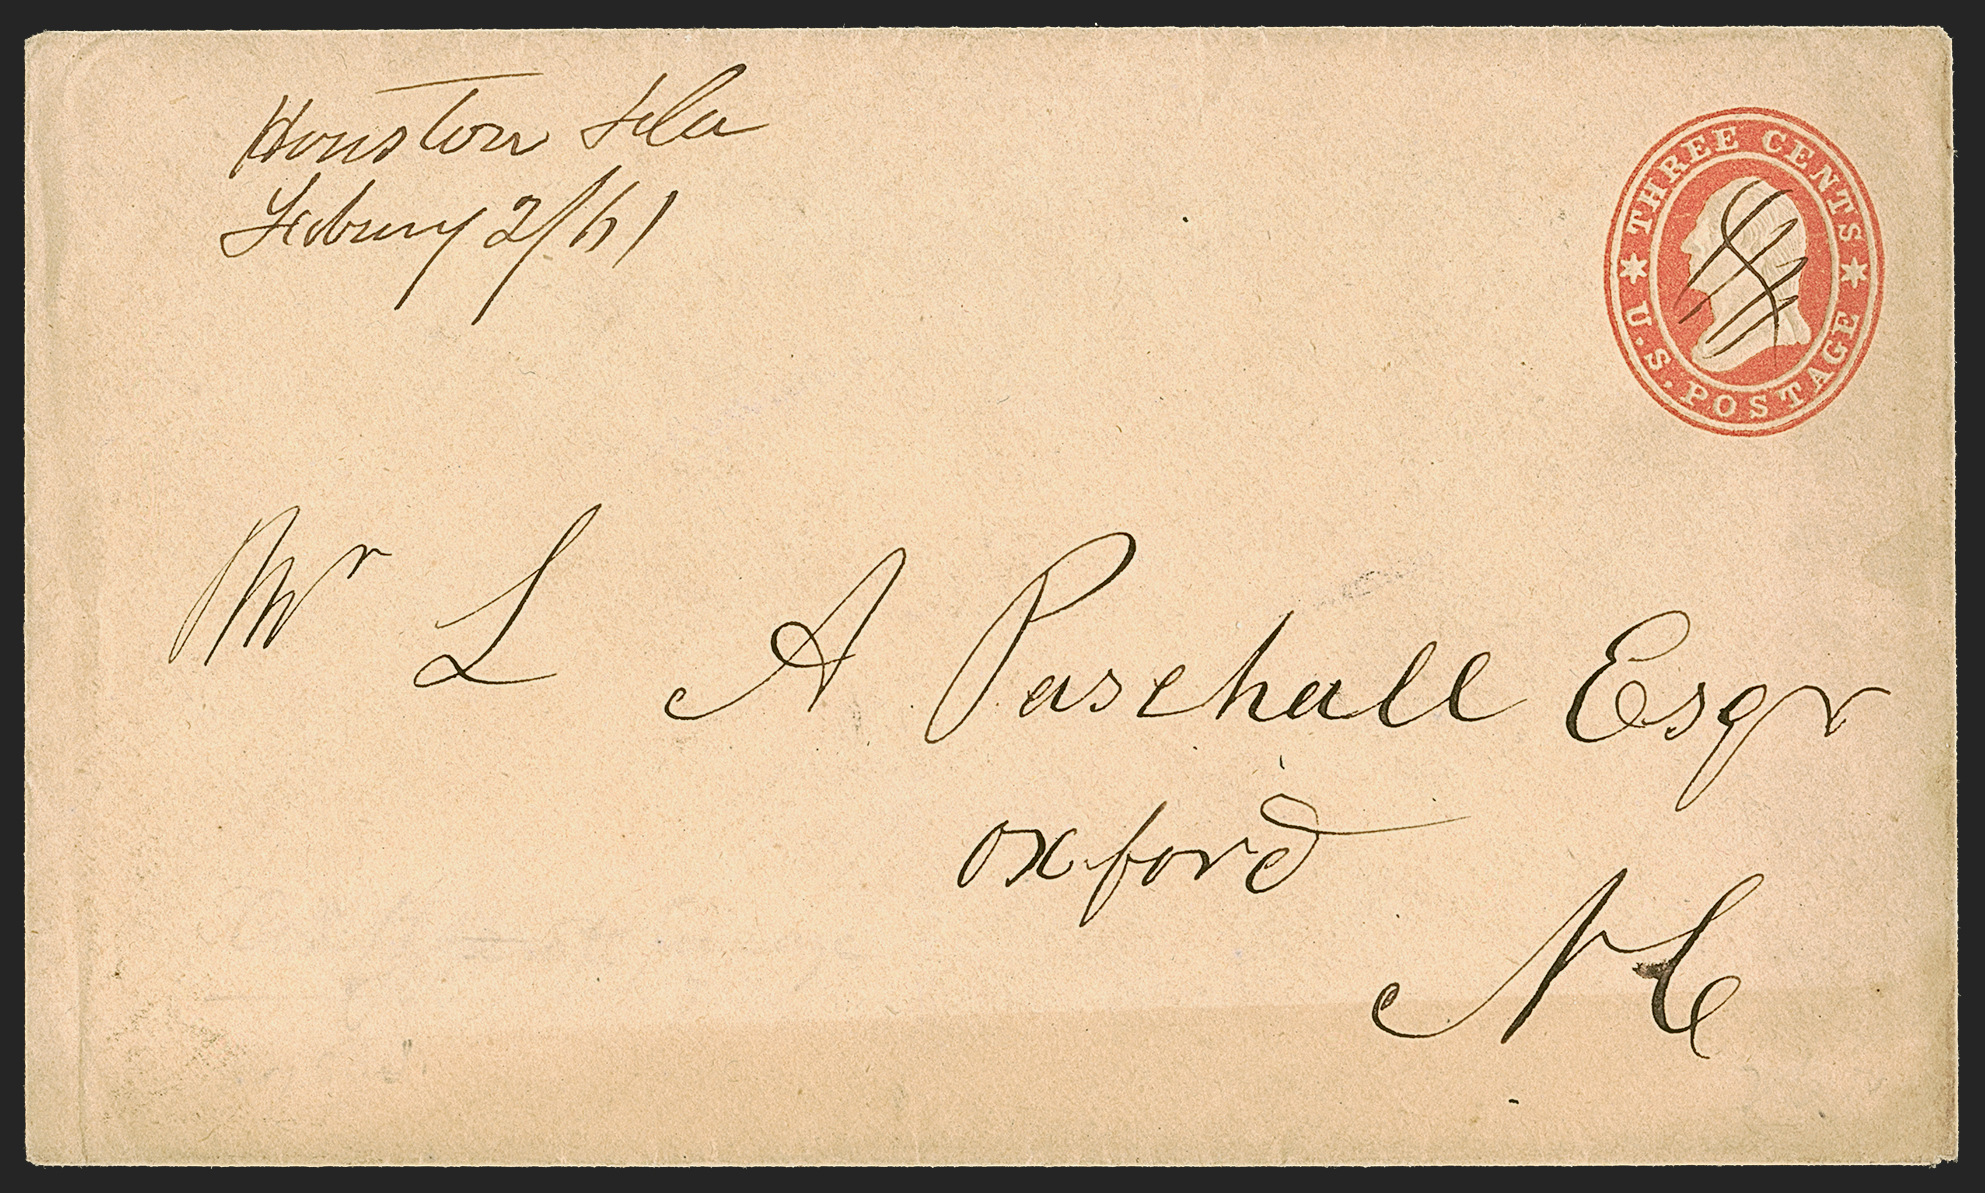 Houston Fla
Febuary 2/61
THREE CENTS
U.S. POSTAGE
Mr L A Paschall Esqr
Oxford
N C